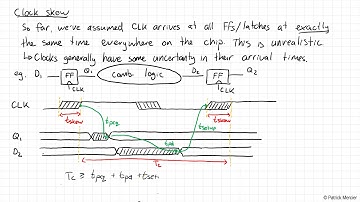 Clock skew
So far, we've assumed CLK arrives at all FFs/latches at exactly
the same time everywhere on the chip. This is unrealistic
↳ Clocks generally have some uncertainty in their arrival times.
eg. D₁ FF Q₁ comb. logic D₂ FF Q₂
CLK CLK
CLK
tskew tpcq tsetup tskew
Q₁
tpd
D₂
Tc
Tc ≥ tpcq + tpd + tsetu
© Patrick Mercier